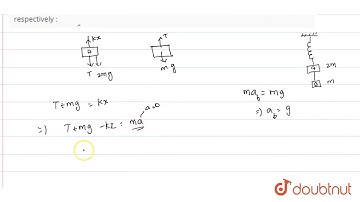 respectively :
kx
A
T 2mg
T
mg
A
2m
B
m
T+mg = kx
ma_b = mg
=> T+mg -kx = ma
a=0
=> a_b = g
doubtnut